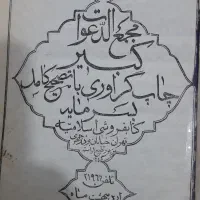 مجمع الدعوات
کبیر
چاپ گراوری با تصحیح کامل
بسرمایه
کتابفروشی اسلامیه
تهران خیابان بوذرجمهری
تلفن ۲۱۹۶۶